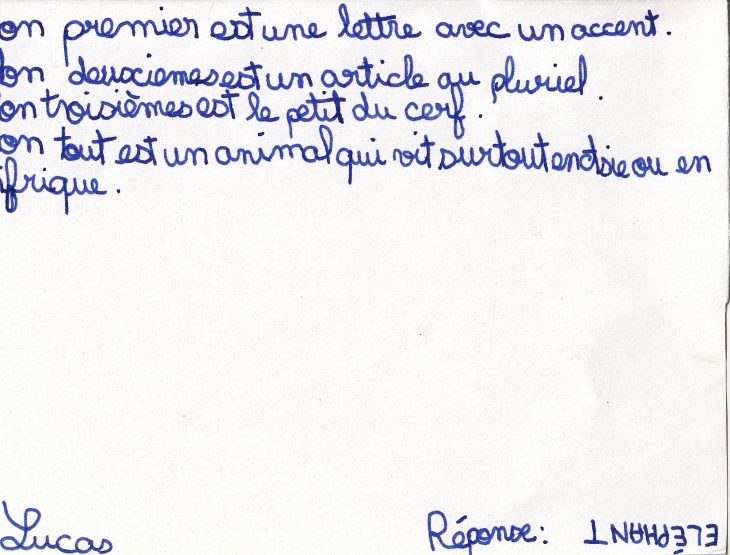 on premier est une lettre avec un accent.
on deuxiemes est un article au pluriel.
on troisièmes est le petit du cerf.
on tout est un animal qui vit surtout en Asie ou en
frique.
Lucas
Réponse: ELEPHANT